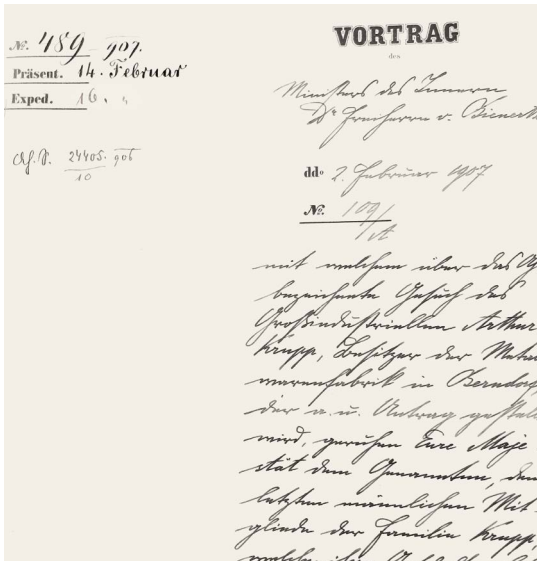 №. 489 907.
Präsent. 14. Februar
Exped. 16. "
24405. 906
10
VORTRAG
des
Ministers des Innern
Dr Freiherrn v. Bienerth
ddo 2. Februar 1907
№. 109/A
mit welchem über das
bezeichnete Gesuch des
Großindustriellen Arthur
Krupp, Besitzer der Meta
warenfabrik in Berndorf
der a. u. Antrag gestel
wird, geruhen Eure Maje
stät dem Genannten, dem
letzten männlichen Mit-
gliede der Familie Krupp,